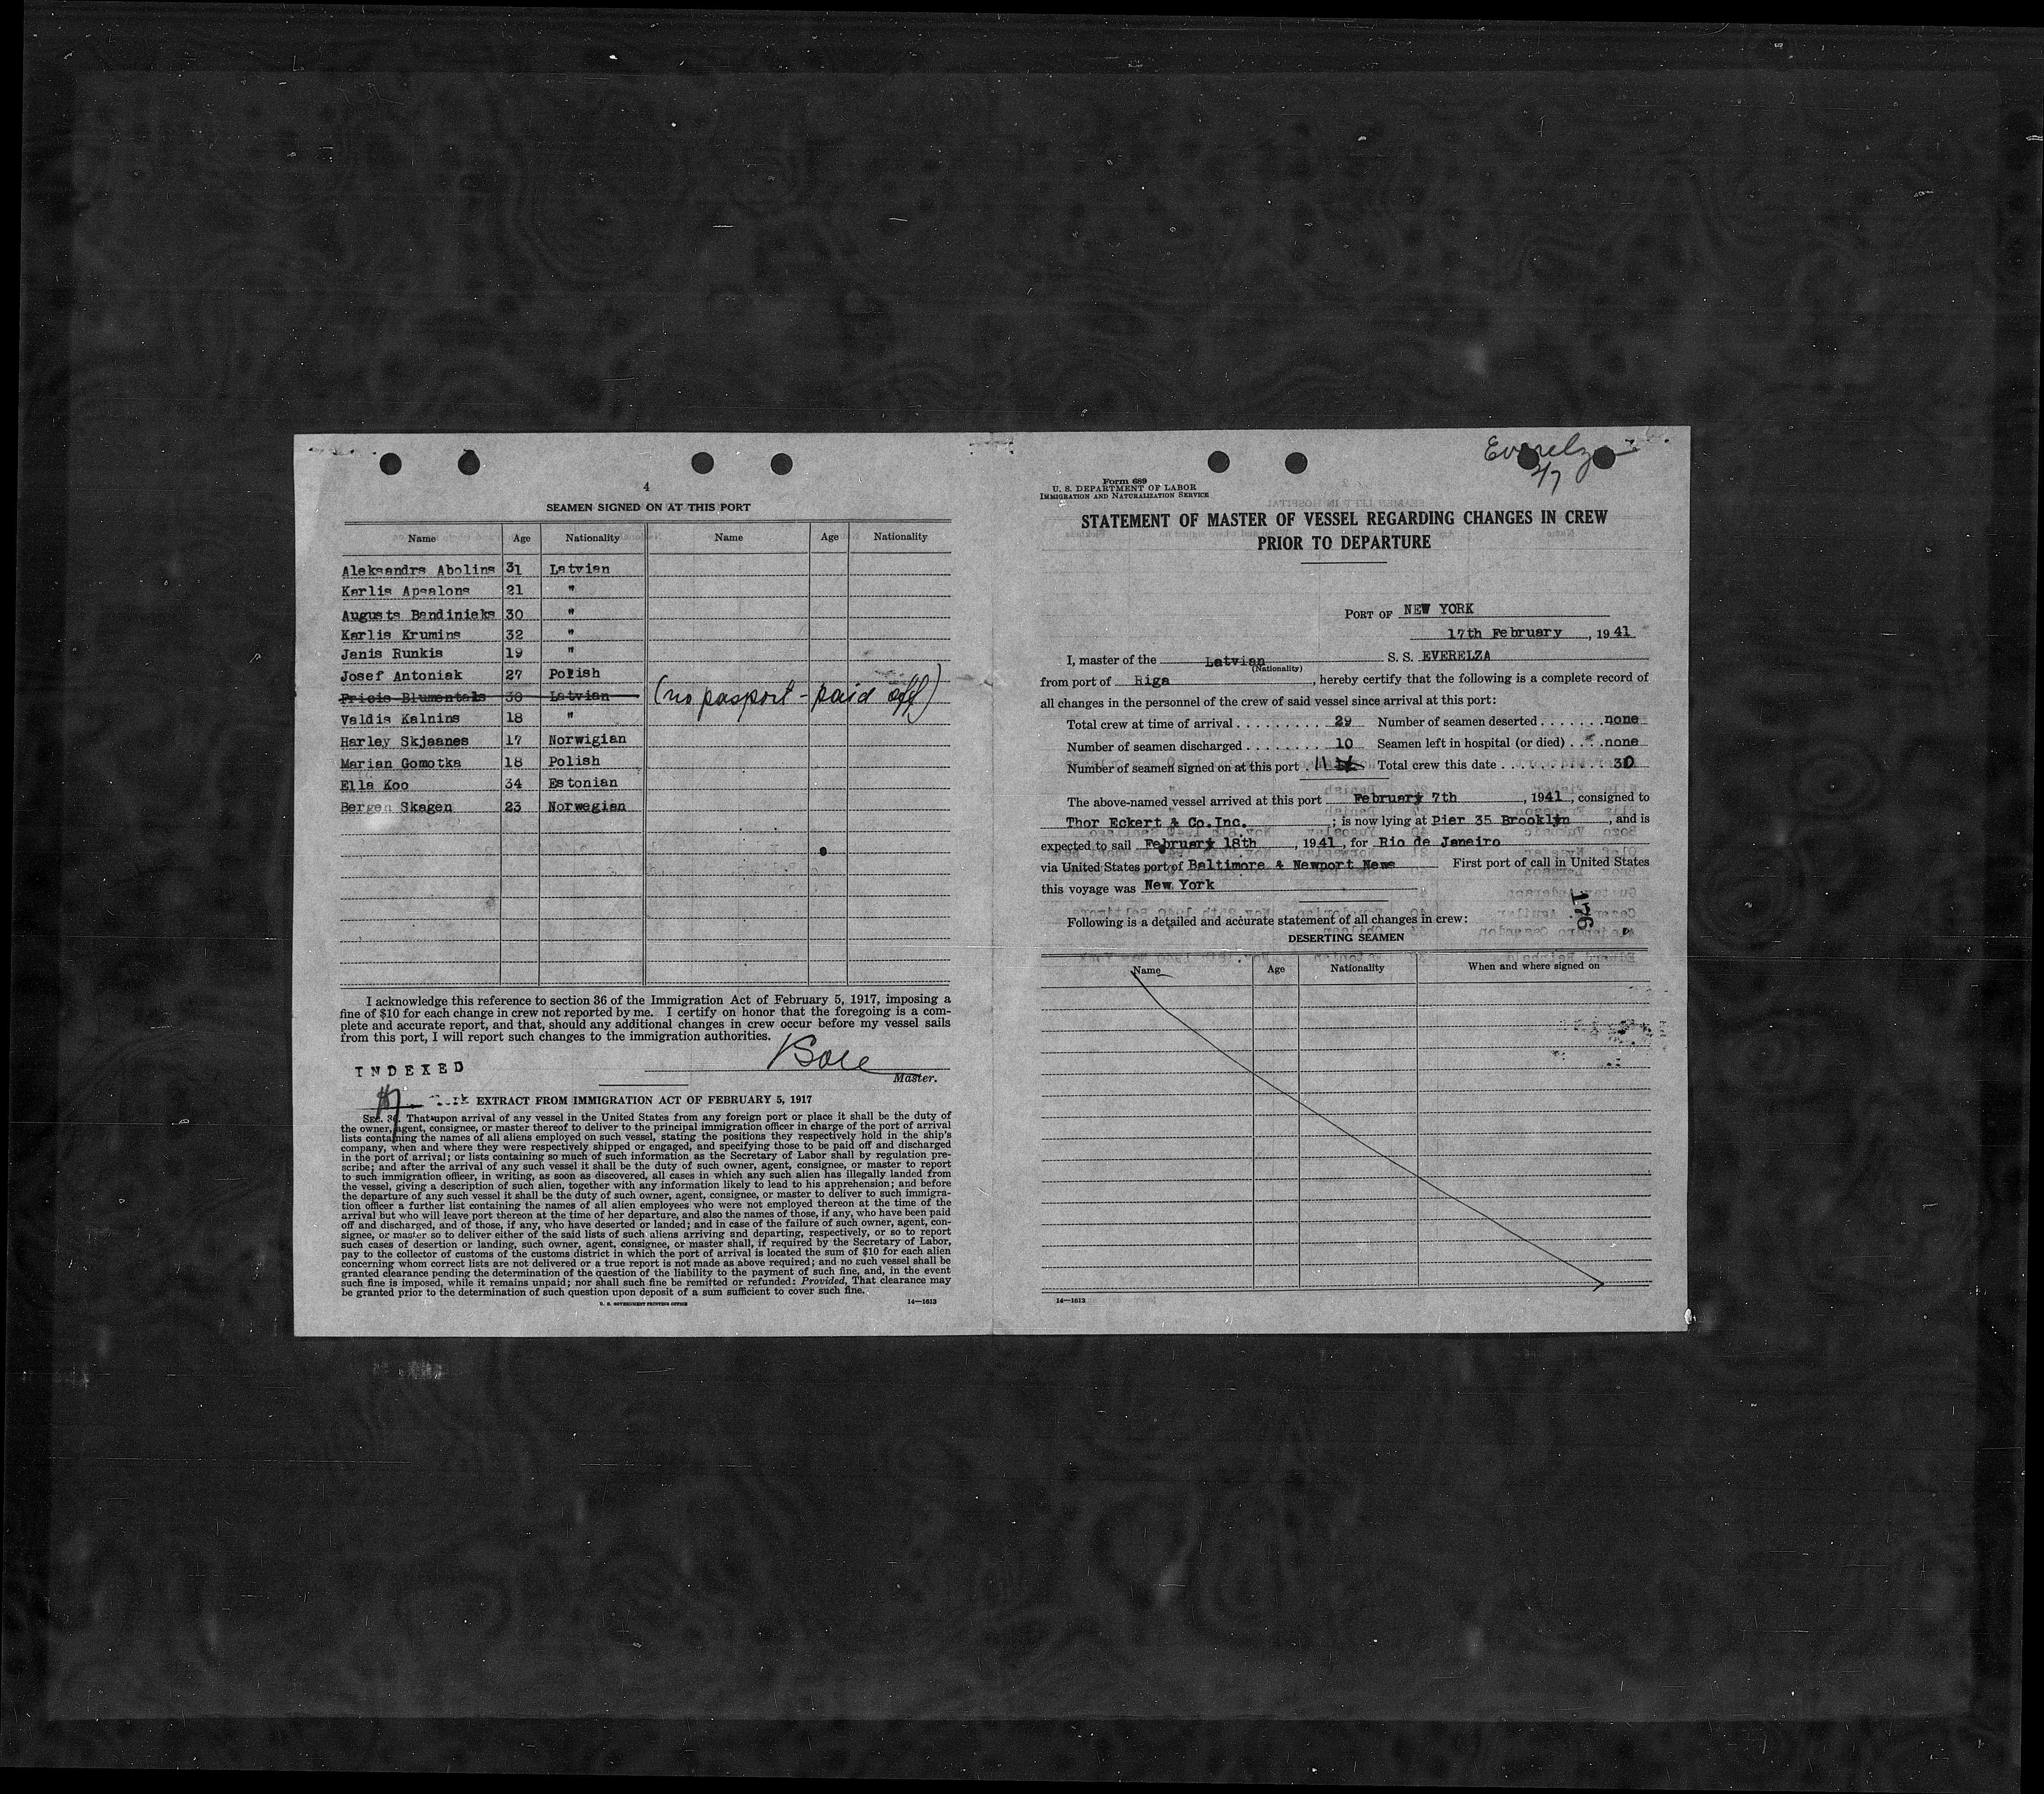 4
SEAMEN SIGNED ON AT THIS PORT
Name Age Nationality Name Age Nationality
Aleksandrs Abolins 31 Latvian
Karlis Apsalons 21 "
Augusts Bendinieks 30 "
Karlis Krumins 32 "
Janis Runkis 19 "
Josef Antoniak 27 Polish
Fricis Blumentals 30 Latvian (no pasport - paid off)
Valdis Kalnins 18 "
Harley Skjaanes 17 Norwigian
Marian Gomotka 18 Polish
Ella Koo 34 Estonian
Bergen Skagen 23 Norwegian
I acknowledge this reference to section 36 of the Immigration Act of February 5, 1917, imposing a
fine of $10 for each change in crew not reported by me. I certify on honor that the foregoing is a com-
plete and accurate report, and that, should any additional changes in crew occur before my vessel sails
from this port, I will report such changes to the immigration authorities.
INDEXED
Master.
EXTRACT FROM IMMIGRATION ACT OF FEBRUARY 5, 1917
SEC. 36. That upon arrival of any vessel in the United States from any foreign port or place it shall be the duty of
the owner, agent, consignee, or master thereof to deliver to the principal immigration officer in charge of the port of arrival
lists containing the names of all aliens employed on such vessel, stating the positions they respectively hold in the ship's
company, when and where they were respectively shipped or engaged, and specifying those to be paid off and discharged
in the port of arrival; or lists containing so much of such information as the Secretary of Labor shall by regulation pre-
scribe; and after the arrival of any such vessel it shall be the duty of such owner, agent, consignee, or master to report
to such immigration officer, in writing, as soon as discovered, all cases in which any such alien has illegally landed from
the vessel, giving a description of such alien, together with any information likely to lead to his apprehension; and before
the departure of any such vessel it shall be the duty of such owner, agent, consignee, or master to deliver to such immigra-
tion officer a further list containing the names of all alien employees who were not employed thereon at the time of the
arrival but who will leave port thereon at the time of her departure, and also the names of those, if any, who have been paid
off and discharged, and of those, if any, who have deserted or landed; and in case of the failure of such owner, agent, con-
signee, or master so to deliver either of the said lists of such aliens arriving and departing, respectively, or so to report
such cases of desertion or landing, such owner, agent, consignee, or master shall, if required by the Secretary of Labor,
pay to the collector of customs of the customs district in which the port of arrival is located the sum of $10 for each alien
concerning whom correct lists are not delivered or a true report is not made as above required; and no such vessel shall be
granted clearance pending the determination of the question of the liability to the payment of such fine, and, in the event
such fine is imposed, while it remains unpaid; nor shall such fine be remitted or refunded: Provided, That clearance may
be granted prior to the determination of such question upon deposit of a sum sufficient to cover such fine.
U. S. GOVERNMENT PRINTING OFFICE 14—1613
Everelza
2/7
Form 689
U. S. DEPARTMENT OF LABOR
IMMIGRATION AND NATURALIZATION SERVICE
STATEMENT OF MASTER OF VESSEL REGARDING CHANGES IN CREW
PRIOR TO DEPARTURE
PORT OF NEW YORK
17th February, 1941
I, master of the Latvian S. S. EVERELZA
(Nationality)
from port of Riga, hereby certify that the following is a complete record of
all changes in the personnel of the crew of said vessel since arrival at this port:
Total crew at time of arrival . . . . . . . . . . 29 Number of seamen deserted . . . . . . . none
Number of seamen discharged . . . . . . . . 10 Seamen left in hospital (or died) . . . . none
Number of seamen signed on at this port . 11 Total crew this date . . . . . . . . . . . 30
The above-named vessel arrived at this port February 7th, 1941, consigned to
Thor Eckert & Co.Inc. ; is now lying at Pier 35 Brooklyn, and is
expected to sail February 18th, 1941, for Rio de Janeiro
via United States port of Baltimore & Newport News First port of call in United States
this voyage was New York
176
Following is a detailed and accurate statement of all changes in crew:
DESERTING SEAMEN
Name Age Nationality When and where signed on
14—1613